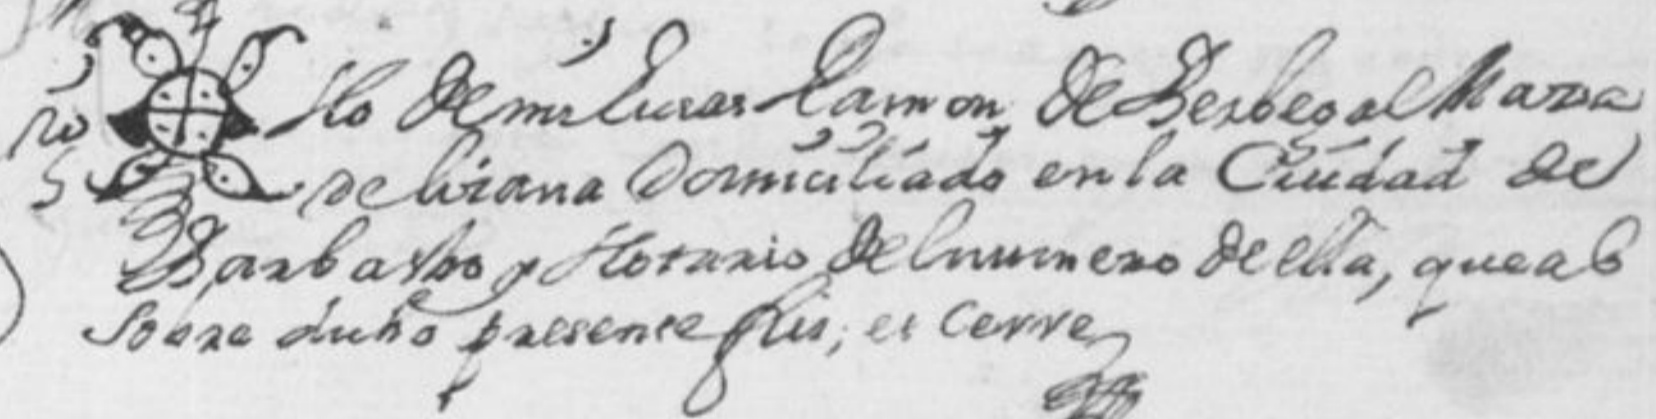 no de mi Lucas Ramon de Berbegal Maza
de Lizana Domiciliado en la Ciudad de
Barbastro y Notario del numero de ella, que a lo
sobre dicho presente fui; et cerre